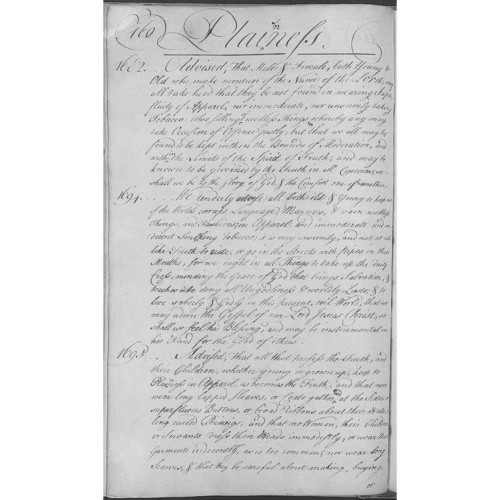 160 Plainness.
1682. Advised, That Male & Female, both Young &
Old who make mention of the Name of the Lord, may
all take heed that they be not found in wearing Super
fluity of Apparel, nor immoderate, nor unseemly taking
Tobacco. Also selling needless Things whereby any may
take Occasion of Offence justly, but that we all may
found to be kept within the Bounds of Moderation, and
within the Limits of the Spirit of Truth, and may be
known to be govern'd by the Truth in all Concerns, so
shall we be to the glory of God, & the Comfort one of another.
1694. We tenderly advise all both old & Young to keep out
of the Worlds corrupt Language, Manners, & vain needless
things, and Apparel, and immoderate, and in
decent Smoaking Tobacco; it is very unseemly, and not at all
like Truth to ride, or go in the Streets with pipes in their
Mouths, for we ought in all Things to take up the daily
Cross, minding the Grace of God that brings Salvation, &
teaches us to deny all Ungodliness & worldly Lusts, & to
live soberly & Godly in this present evil World, that we
may adorn the Gospel of our Lord Jesus Christ, so
shall we feel his Blessing, and may be instrumental in
his Hand for the Good of others.
1695. Advised, That all that profess the Truth, and
their Children, whether young or grown up, keep to
Plainness in Apparel as becomes the Truth, and that none
wear long lapped Sleeves, or Coats gather'd at the Sides, or
superfluous Buttons, or broad Ribbons about their Hats, or
long curled Periwigs; and that no Women, their Children
or Servants dress their Heads immodestly, or wear their
Garments indecently, as is too common; nor wear long
Scarves, & that they be careful about making, buying,
or